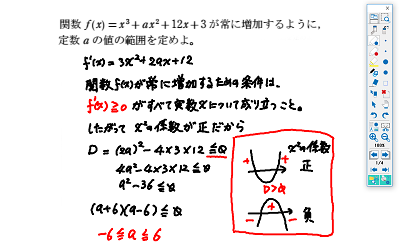 関数 f(x)=x³+ax²+12x+3 が常に増加するように，
定数 a の値の範囲を定めよ。
f'(x)=3x²+2ax+12
関数f(x)が常に増加するための条件は、
f'(x)≧0 がすべて実数xについて成り立つこと。
したがって x²の係数が正だから
D=(2a)²-4×3×12≦0
4a²-4×3×12≦0
a²-36≦0
(a+6)(a-6)≦0
-6≦a≦6
x²の係数
+ + 正
D>0
+ 負
- -
100%
1/4